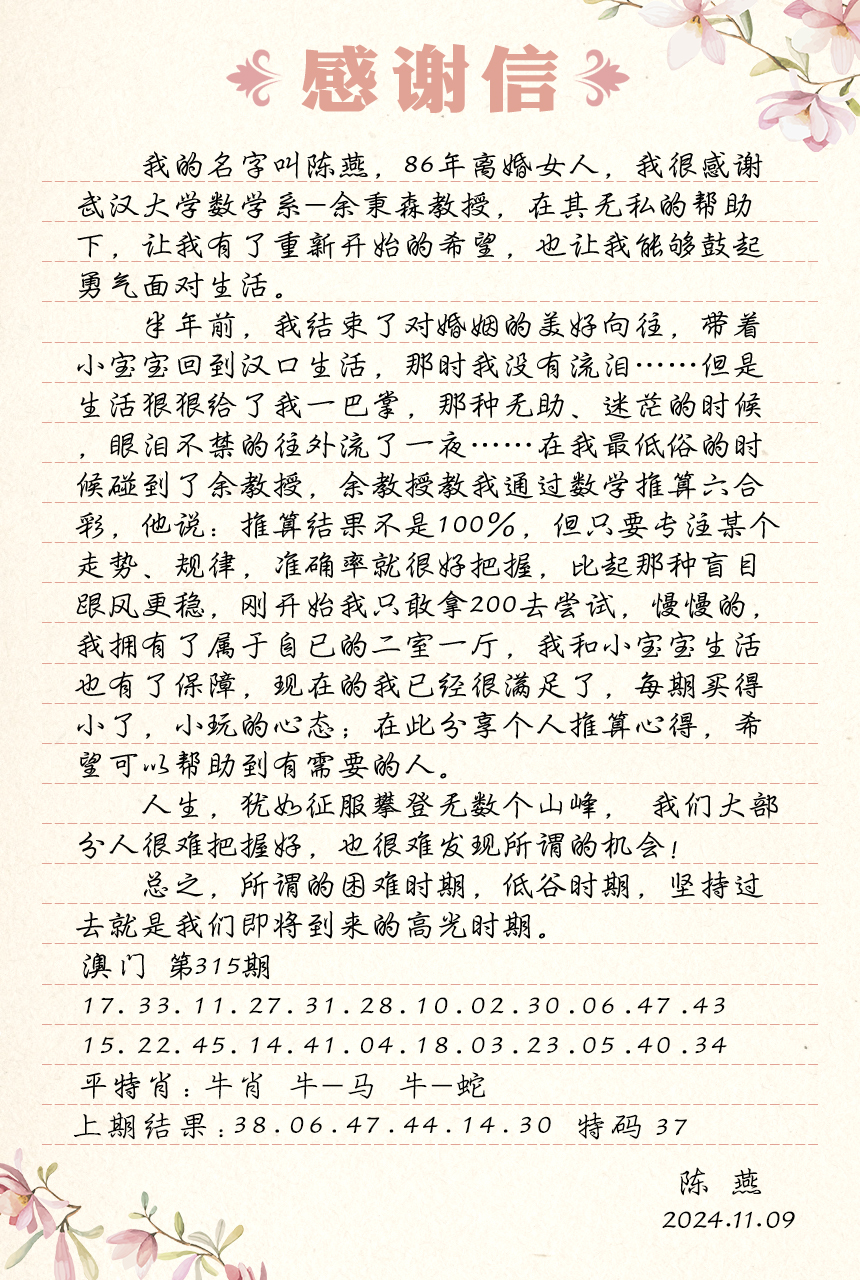 感谢信
我的名字叫陈燕，86年离婚女人，我很感谢
武汉大学数学系—余秉森教授，在其无私的帮助
下，让我有了重新开始的希望，也让我能够鼓起
勇气面对生活。
半年前，我结束了对婚姻的美好向往，带着
小宝宝回到汉口生活，那时我没有流泪……但是
生活狠狠给了我一巴掌，那种无助、迷茫的时候
，眼泪不禁的往外流了一夜……在我最低俗的时
候碰到了余教授，余教授教我通过数学推算六合
彩，他说：推算结果不是100%，但只要专注某个
走势、规律，准确率就很好把握，比起那种盲目
跟风更稳，刚开始我只敢拿200去尝试，慢慢的，
我拥有了属于自已的二室一厅，我和小宝宝生活
也有了保障，现在的我已经很满足了，每期买得
小了，小玩的心态；在此分享个人推算心得，希
望可以帮助到有需要的人。
人生，犹如征服攀登无数个山峰， 我们大部
分人很难把握好，也很难发现所谓的机会！
总之，所谓的困难时期，低谷时期，坚持过
去就是我们即将到来的高光时期。
澳门 第315期
17.33.11.27.31.28.10.02.30.06.47.43
15.22.45.14.41.04.18.03.23.05.40.34
平特肖：牛肖 牛—马 牛—蛇
上期结果：38.06.47.44.14.30 特码 37
陈 燕
2024.11.09